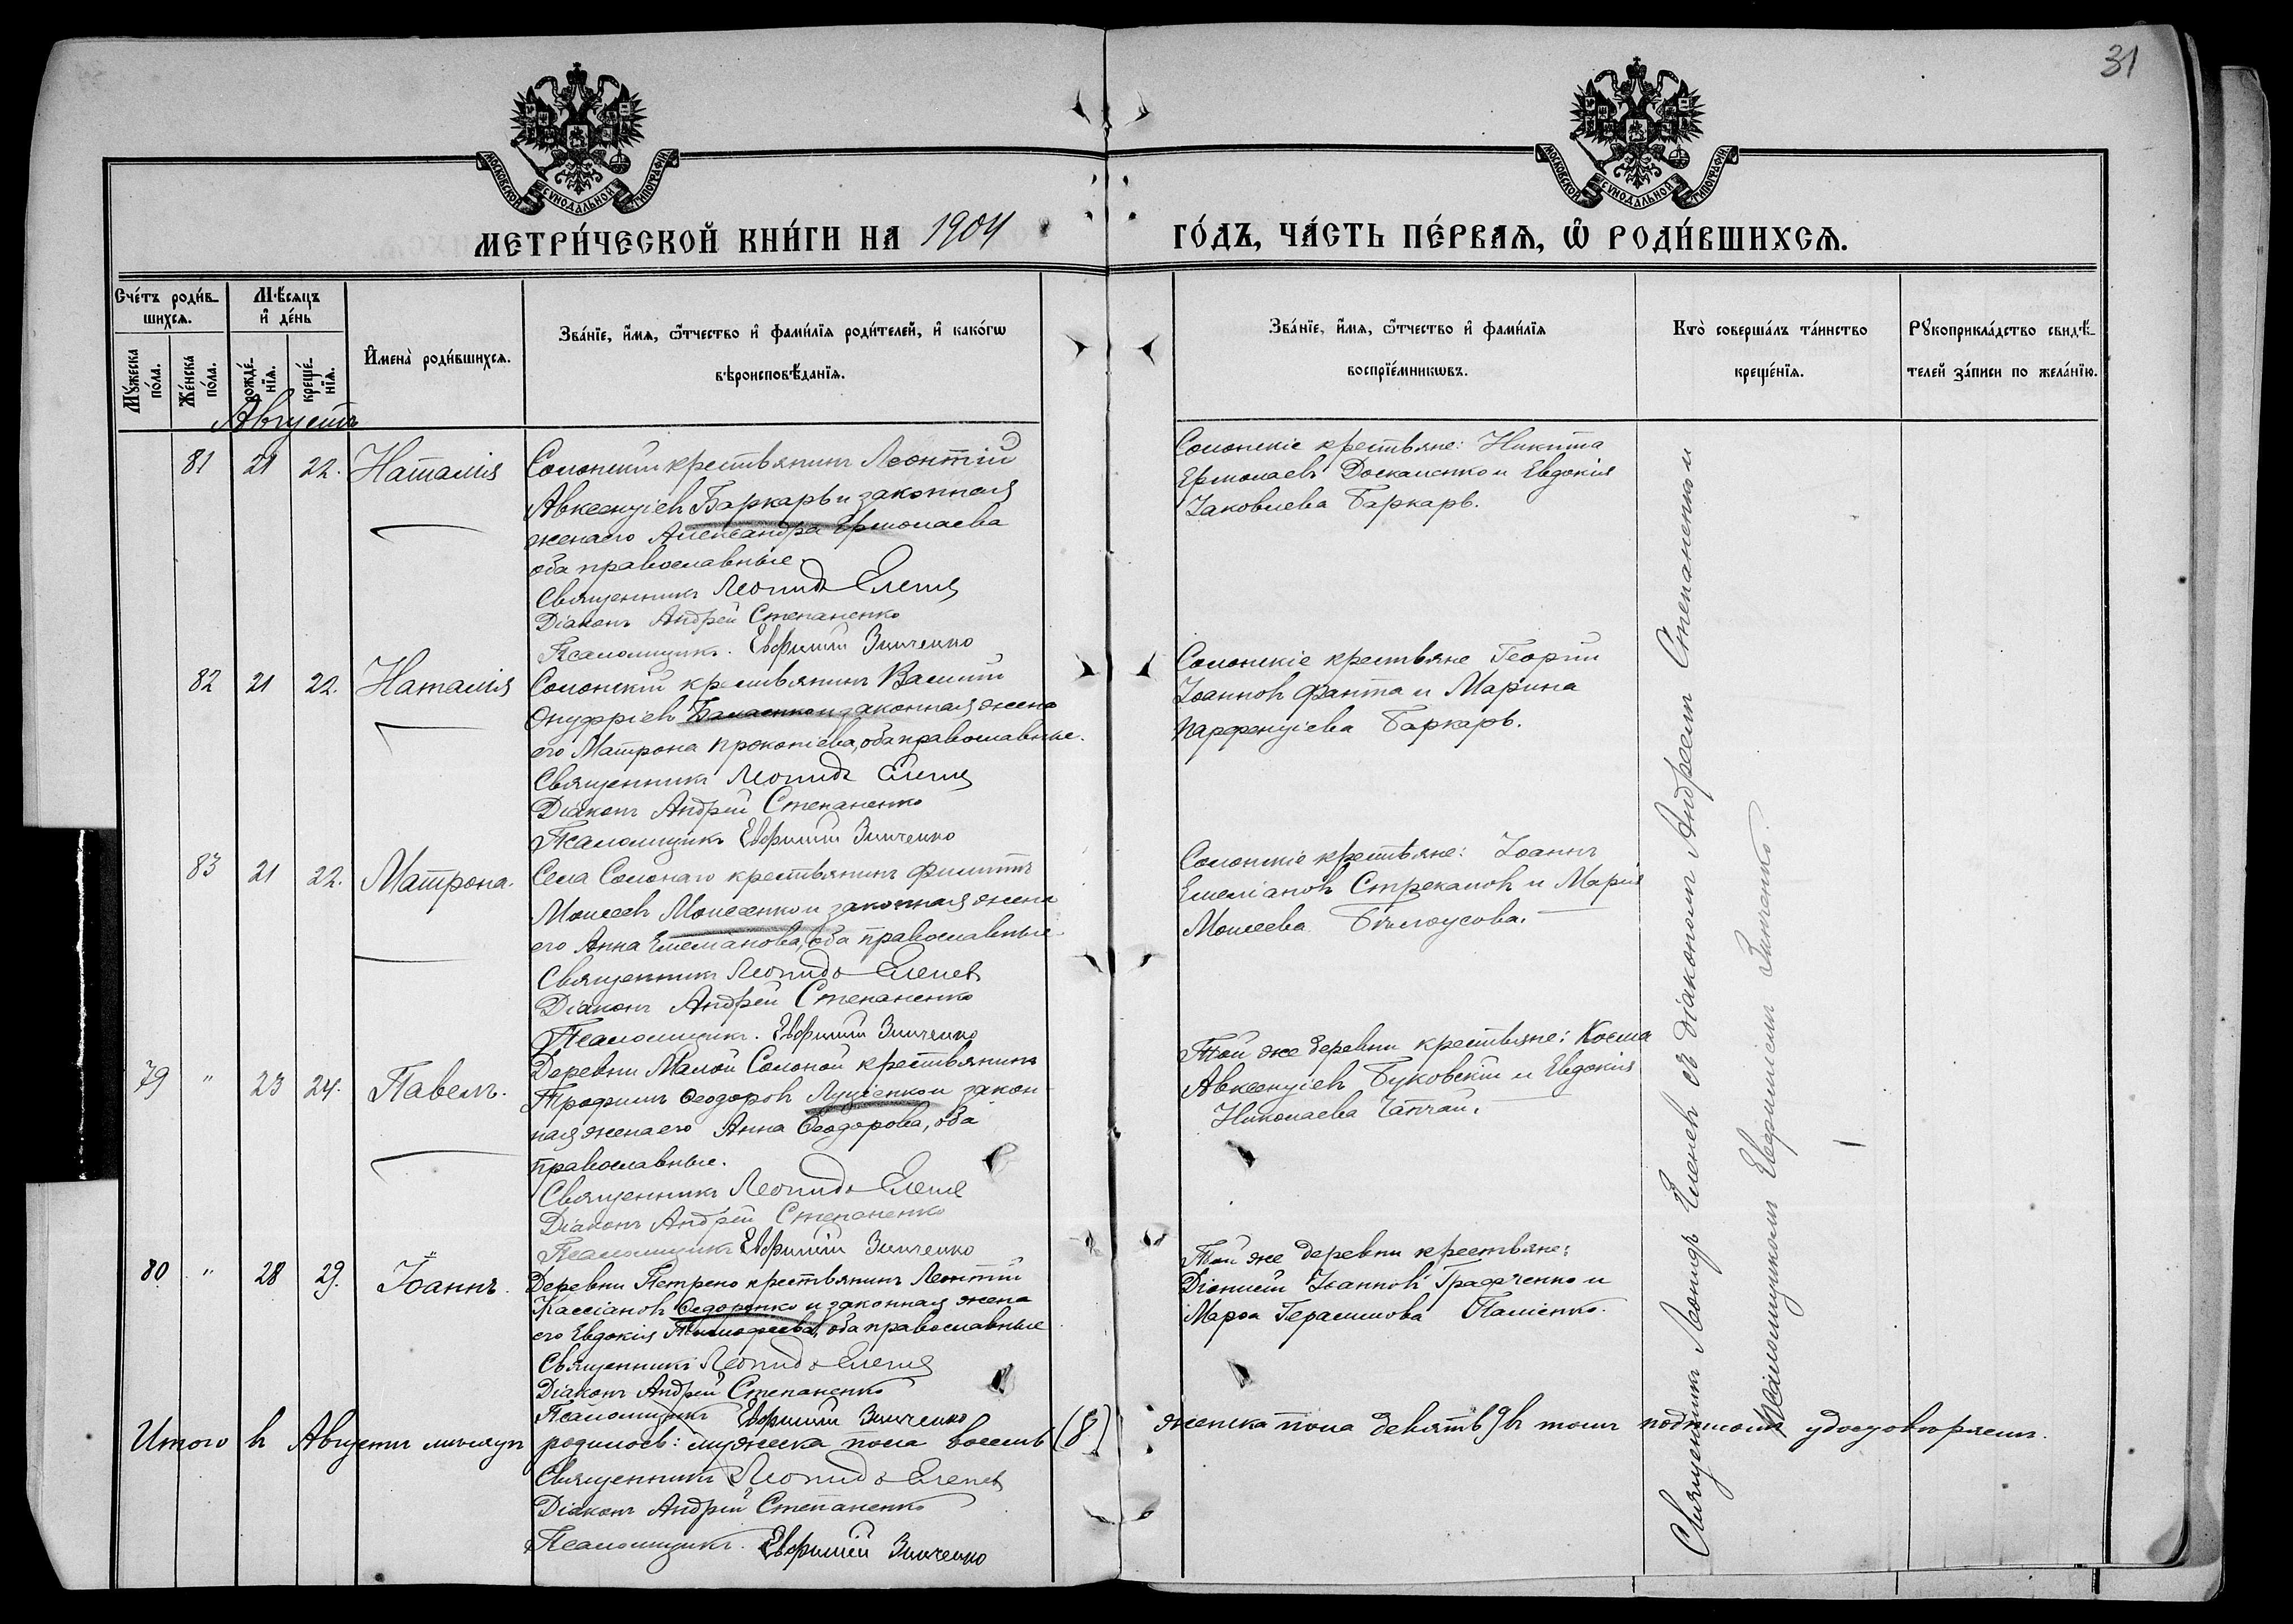 31
МОСКОВСКОЙ СѴНОДАЛЬНОЙ ТИПОГРАФІИ
МОСКОВСКОЙ СѴНОДАЛЬНОЙ ТИПОГРАФІИ
МЕТРИ́ЧЕСКОЙ КНИ́ГИ НА 1904
ГО́ДЪ, ЧА́СТЬ ПЕ́РВАѦ, Ѡ РОДИ́ВШИХСѦ.
Сче́тъ роди́в-
шихсѧ.
Мꙋ́жеска
по́ла.
Же́нска
по́ла.
Мѣ́сѧцъ
и҆ де́нь
рожде́-
нїѧ.
креще́-
нїѧ.
И҆мена̀ роди́вшихсѧ.
Зва́нїе, и҆́мѧ, ѻ҆́тчество и҆ фами́лїѧ роди́телей, и҆ како́гѡ
вѣроисповѣ́данїѧ.
Зва́нїе, и҆́мѧ, ѻ҆́тчество и҆ фами́лїѧ
воспрїе́мникѡвъ.
Кто̀ соверша́лъ та́инство
креще́нїѧ.
Рꙋкоприкла́дство свидѣ́-
телей за́писи по жела́нїю.
Августъ
81 21 22. Наталія
Солонскій крестьянинъ Леонтій
Авксентіевъ Баркарь и законная
жена его Александра Ермолаева
оба православные.
Священникъ Леонидъ Еленевъ
Діаконъ Андрей Степаненко
Псаломщикъ. Евфимій Зинченко
Солонскіе крестьяне: Никита
Ермолаевъ Доскаленко и Евдокія
Іаковлева Баркарь.
82 21 22. Наталія
Солонскій крестьянинъ Василій
Онуфріевъ и законная жена
его Матрона Прокопіева, оба православные.
Священникъ Леонидъ Еленевъ
Діаконъ Андрей Степаненко
Псаломщикъ Евфимій Зинченко
Солонскіе крестьяне Георгій
Іоанновъ Фанта и Марина
Парфентіева Баркарь.
83 21 22. Матрона.
Села Солонаго крестьянинъ Филиппъ
Моисеевъ Моисеенко и законная жена
его Анна Емеліанова, оба православные
Священникъ Леонидъ Еленевъ
Діаконъ Андрей Степаненко
Псаломщикъ. Евфимій Зинченко
Солонскіе крестьяне: Іоаннъ
Емеліановъ Стрекаловъ и Марія
Моисеева Бѣлоусова.
79 " 23 24. Павелъ.
Деревни Малой Солоной крестьянинъ
Трофимъ Ѳеодоровъ Луціенко и закон
ная жена его Анна Ѳеодорова, оба
православные.
Священникъ Леонидъ Еленевъ
Діаконъ Андрей Степаненко
Псаломщикъ Евфимій Зинченко
Той же деревни крестьяне: Косма
Авксентіевъ Буковскій и Евдокія
Николаева Чапчай.
80 " 28 29. Іоаннъ.
Деревни Петрено крестьянинъ Леонтій
Кассіановъ Ѳедоренко и законная жена
его Евдокія Тимофеева, оба православные
Священникъ Леонидъ Еленевъ
Діаконъ Андрей Степаненко
Псаломщикъ Евфимій Зинченко
Той же деревни крестьяне:
Діонисій Іоанновъ и
Марѳа Герасимова Паліенко.
Священникъ Леонидъ Еленевъ съ діакономъ Андреемъ Степаненко и
псаломщикомъ Евфиміемъ Зинченко.
Итого въ Августѣ мѣсяцѣ родилось: мужеска пола восемь (8) женска пола девять 9 въ томъ подписомъ удостовѣряемъ.
Священникъ Леонидъ Еленевъ
Діаконъ Андрей Степаненко
Псаломщикъ. Евфимій Зинченко